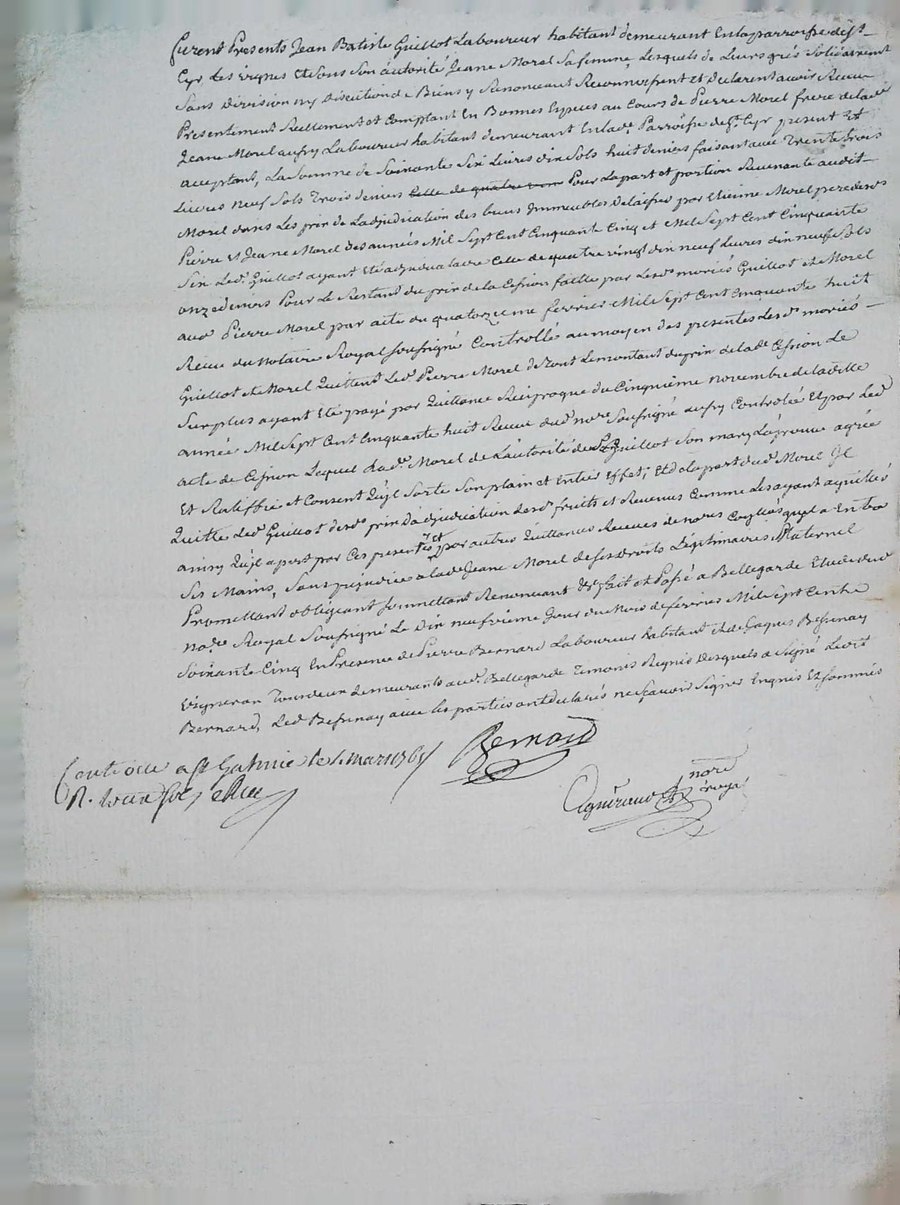 furent Presents Jean Batiste Guillot Laboureur habitant demeurant En la parroisse de St
Cyr Les vignes Et sous son autorité Jeane Morel sa femme Lesquels de Leurs grés Solidairement
sans Division ny Discution de Biens y Renonceant Reconnoissent et Declarent avoir Receu
Presentement Reellement et Comptant En Bonnes Especes au Cours de Pierre Morel frere de lade
Jeane Morel aussy Laboureur habitant demeurant En lade Parroisse de St Cyr present Et
acceptant, La somme de Soixante Six Livres dix Sols huit deniers faisant avec Trente trois
Livres neuf Sols Trois deniers Pour La part et portion Revenante audit
Morel dans Les prix de Ladjudication des biens Immeubles delaissés par Etienne Morel
Pierre et Jeane Morel des années Mil Sept Cent Cinquante Cinq et Mil Sept Cent Cinquante
Six Led. Guillot ayant Eté adjudicataire Celle de quatre vingt dix neuf Livres dix neuf Sols
onze deniers Pour Le Restant du prix de la Cession faitte par Lesd. mariés Guillot et Morel
aud. Pierre Morel par acte du quatorzieme fevrier Mil Sept Cent Cinquante huit
Receu du Notaire Royal soussigné Controllé au moyen des presentes Lesd. mariés
Guillot et Morel Quittent Led. Pierre Morel de tout Le montant du prix de lade Cession Le
Surplus ayant Eté payé par Quittance Reciproque du Cinquième novembre de laditte
année Mil Sept Cent Cinquante huit Receue dud. nore Soussigné aussy Controlée Et par Led.
acte de Cession Lequel lad. Morel de L'autorité dud. Guillot son mary Laprouve agrée
Et Ratiffie et Consent Qu'jl Sorte Son plain et Entier Effet, Et de la part dud. Morel Jl
Quitte Led. Guillot desd. prix d'adjudication desd. fruits et Revenus Comme Les ayant acquités
ainsy Qu'jl apert par Ces presentes et par autres Quittances Receues de nores qu'jl a Entre
Ses Mains, Sans prejudice a lade Jeane Morel de ses Droits Légitimaires Maternel
Promettant obligeant soumettant Renonceant &a fait et Passé a Bellegarde Etude dud.
nore Royal Soussigné Le Dix neufvieme Jour du Mois de fevrier Mil Sept Cent
Soixante Cinq En Presence de Pierre Bernard Laboureur habitant et de Jaques Bessenay
Vigneron demeurants aud. Bellegarde Temoins Requis Desquels a Signé Ledit
Bernard, Led. Bessenay avec les parties ont declarés ne sçavoir Signer Enquis Et sommés
Bernard
Controllé a St Galmier le mars 1765
R.
nore
royal